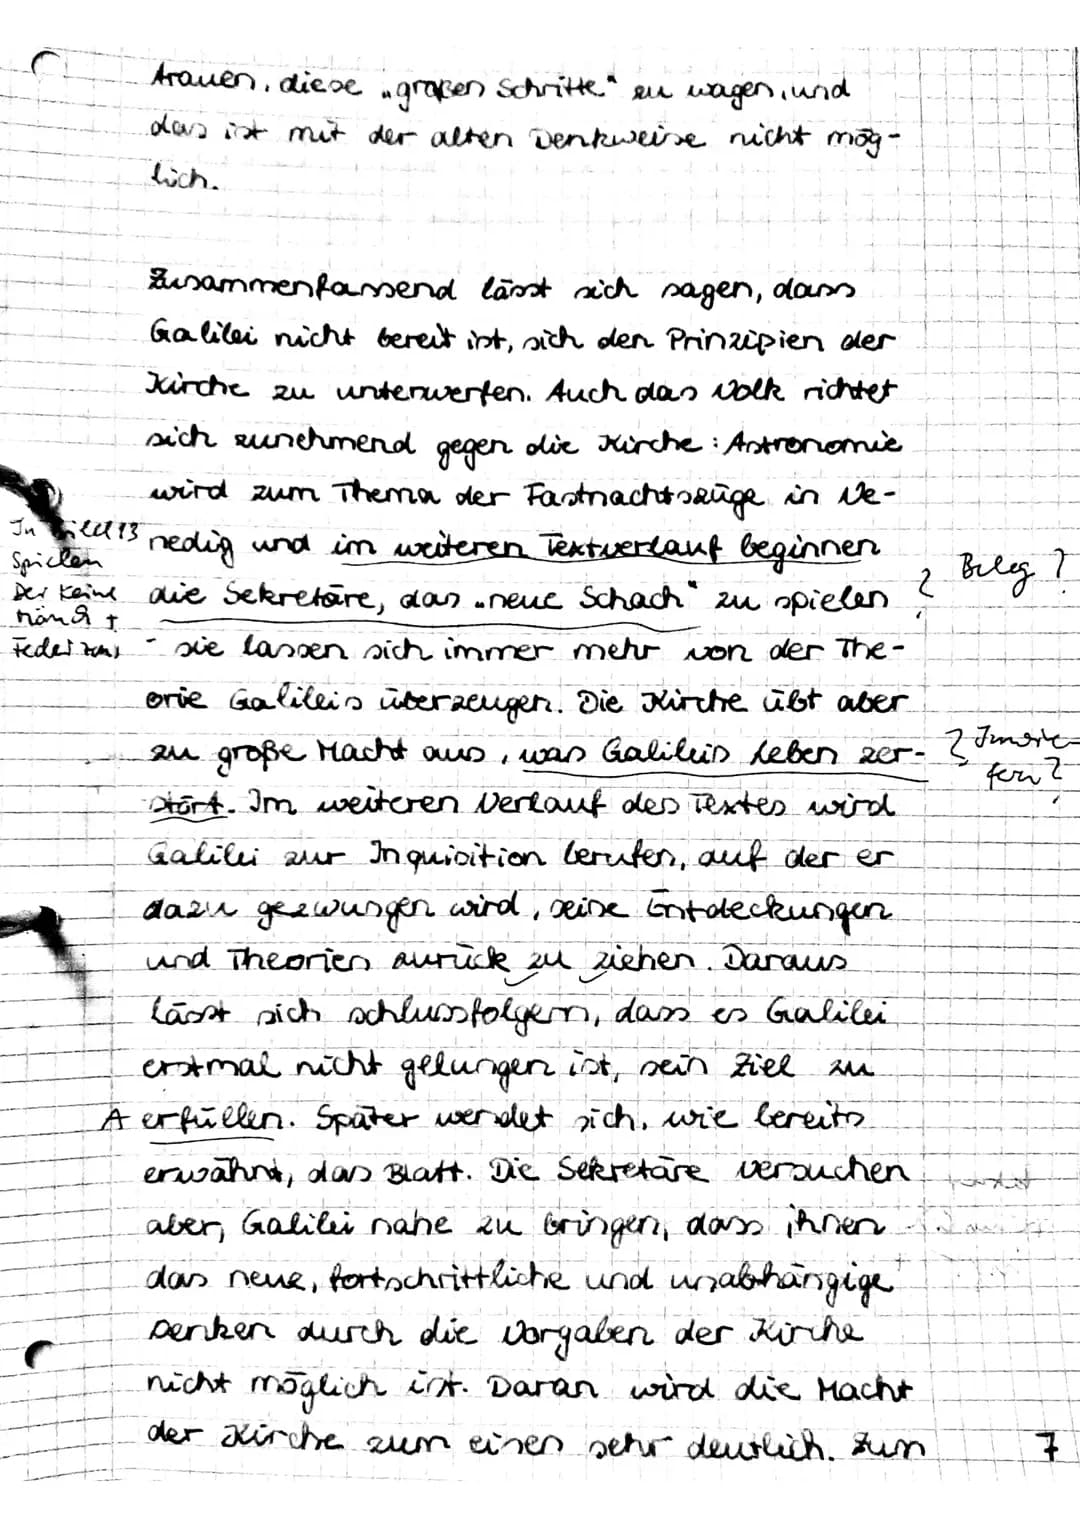 trauen, diese „großen Schritte" zu wagen, und
das ist mit der alten Denkweise nicht mög-
lich.
Zusammenfassend lässt sich sagen, dass
Galilei nicht bereit ist, sich den Prinzipien der
Kirche zu unterwerfen. Auch das Volk richtet
sich zunehmend gegen die Kirche: Astronomie
wird zum Thema der Fastnachtszüge in Ve-
nedig und im weiteren Textverlauf beginnen
die Sekretäre, das „neue Schach" zu spielen
- sie lassen sich immer mehr von der The-
orie Galileis überzeugen. Die Kirche übt aber
zu große Macht aus, was Galileis Leben zer-
stört. Im weiteren Verlauf des Textes wird
Galilei zur Inquisition berufen, auf der er
dazu gezwungen wird, seine Entdeckungen
und Theorien zurück zu ziehen. Daraus
lässt sich schlussfolgern, dass es Galilei
erstmal nicht gelungen ist, sein Ziel zu
A erfüllen. Später wendet sich, wie bereits
erwähnt, das Blatt. Die Sekretäre versuchen
aber, Galilei nahe zu bringen, dass ihnen
das neue, fortschrittliche und unabhängige
Denken durch die Vorgaben der Kirche
nicht möglich ist. Daran wird die Macht
der Kirche zum einen sehr deutlich. Zum
7
In Bild 13
spielen
Der kleine
Mönch +
Federzoni
? Beleg?
? Inwie-
fern?